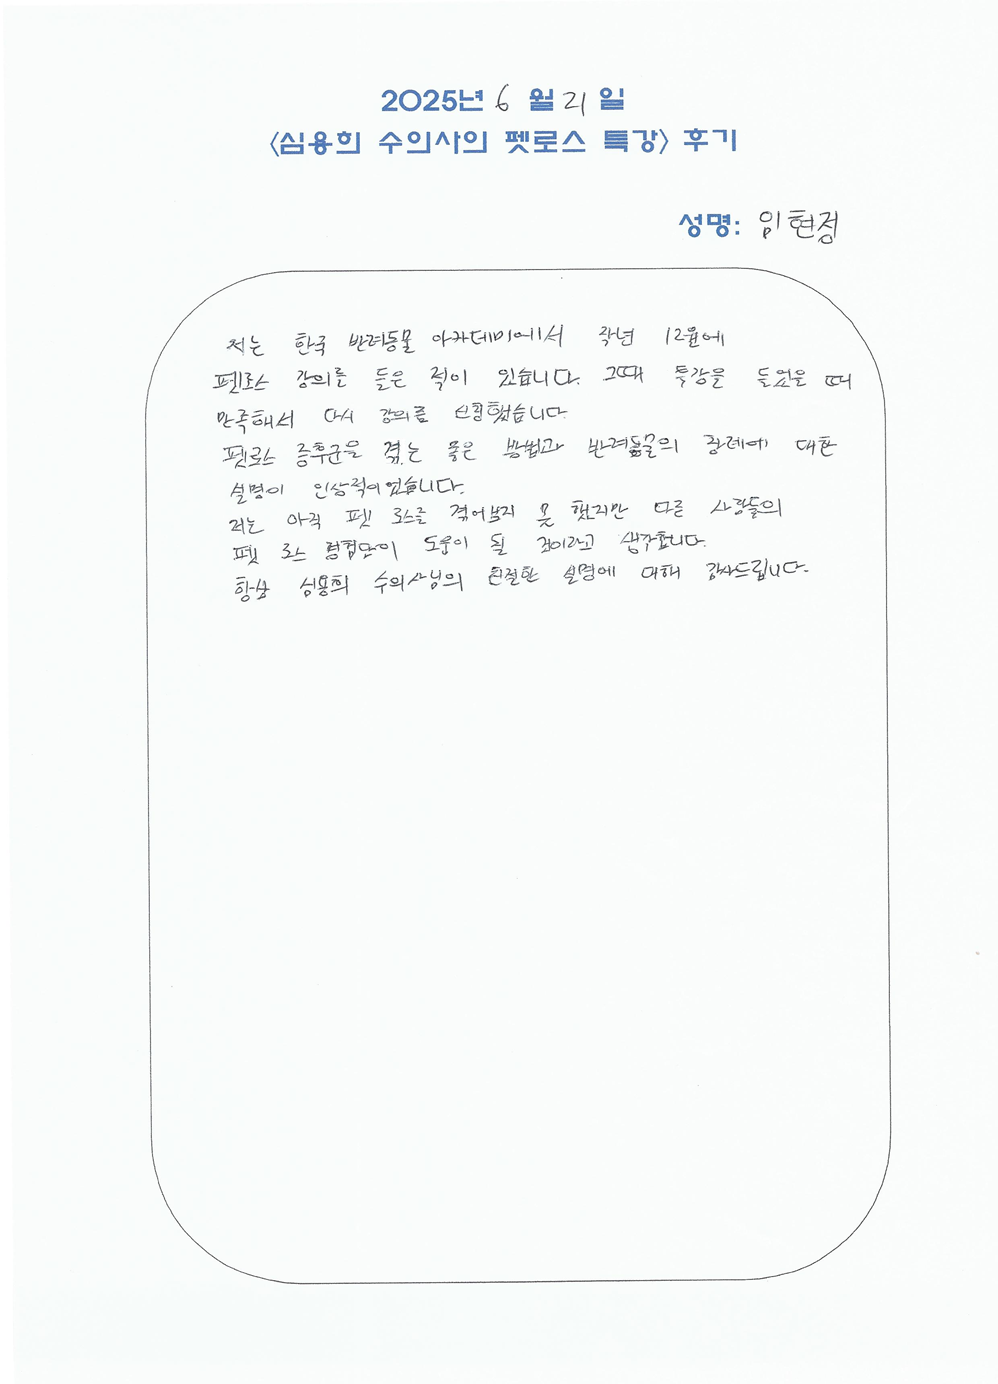 2025년 6 월 21 일
<심용희 수의사의 펫로스 특강> 후기
성명: 임현정
저는 한국 반려동물 아카데미에서 작년 12월에
펫로스 강의를 들은 적이 있습니다. 그때 특강을 들었을 때
만족해서 다시 강의를 신청했습니다.
펫로스 증후군을 겪는 좋은 방법과 반려동물의 장례에 대한
설명이 인상적이었습니다.
저는 아직 펫 로스를 겪어보지 못 했지만 다른 사람들의
펫 로스 경험담이 도움이 될 것이라고 생각합니다.
항상 심용희 수의사님의 친절한 설명에 대해 감사드립니다.